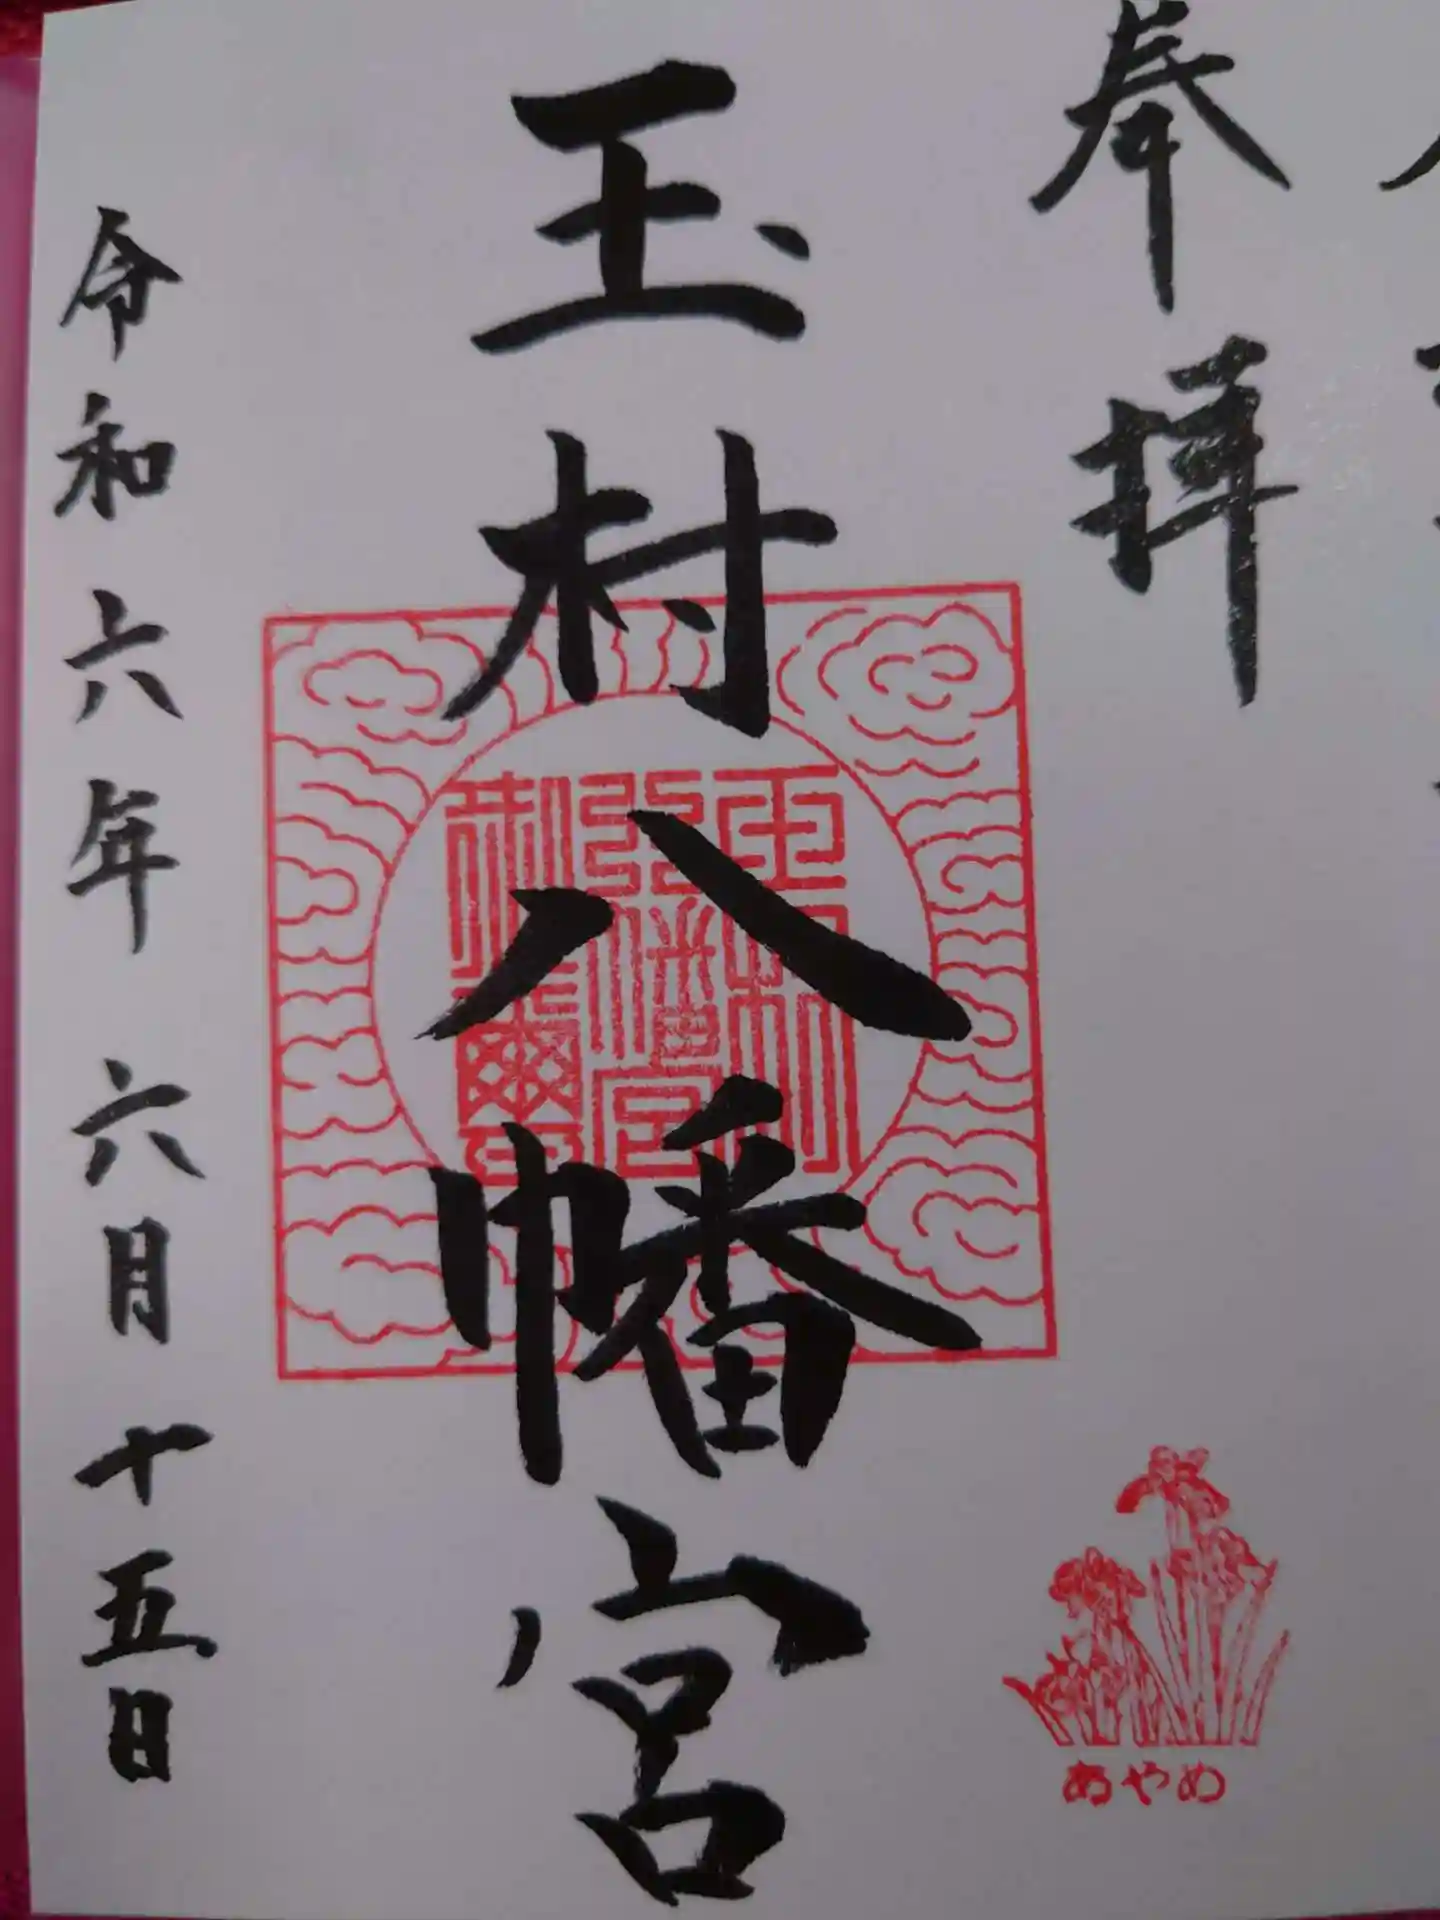 奉拝
玉村八幡宮
令和六年 六月十五日
あやめ